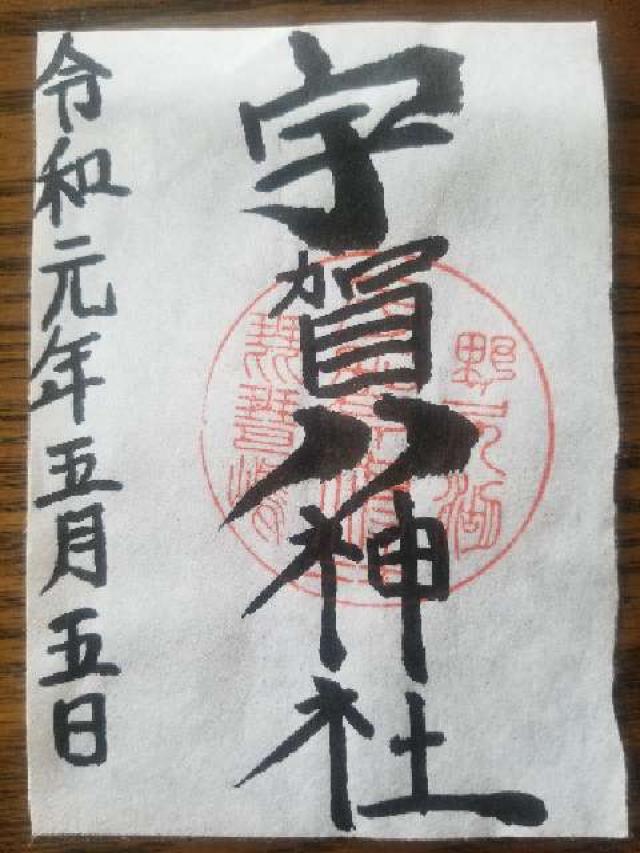 宇賀神社
野尻湖
令和元年五月五日